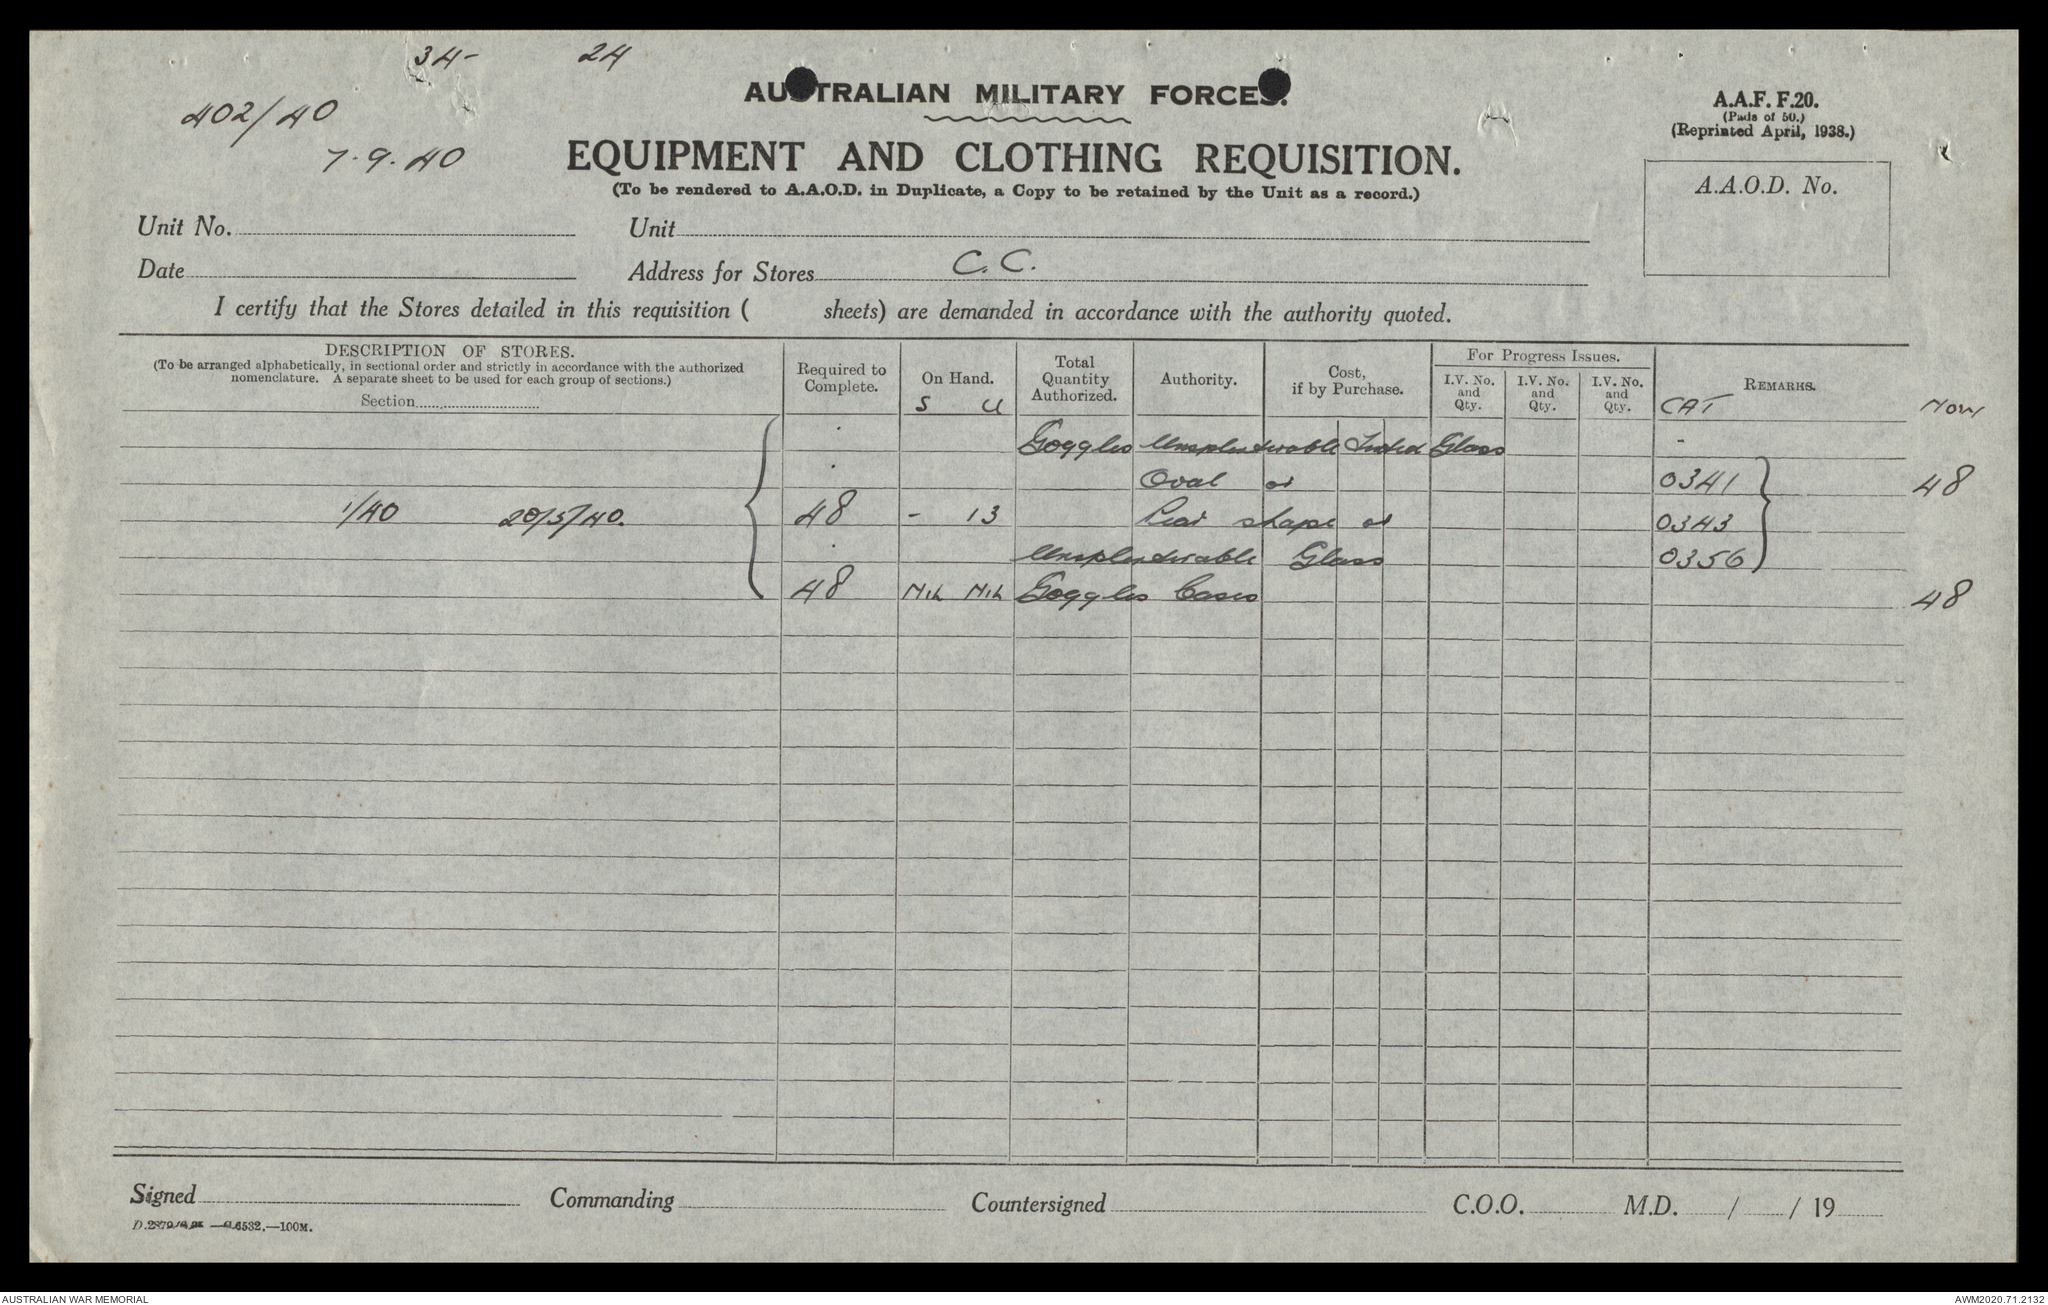 34- 24
402/40
7.9.40
AUSTRALIAN MILITARY FORCES.
EQUIPMENT AND CLOTHING REQUISITION.
(To be rendered to A.A.O.D. in Duplicate, a Copy to be retained by the Unit as a record.)
A.A.F. F.20.
(Pads of 50.)
(Reprinted April, 1938.)
A.A.O.D. No.
Unit No. Unit
Date Address for Stores C.C.
I certify that the Stores detailed in this requisition ( sheets) are demanded in accordance with the authority quoted.
DESCRIPTION OF STORES.
(To be arranged alphabetically, in sectional order and strictly in accordance with the authorized
nomenclature. A separate sheet to be used for each group of sections.)
Section
Required to
Complete.
On Hand.
S U
Total
Quantity
Authorized.
Authority.
Cost,
if by Purchase.
For Progress Issues.
I.V. No.
and
Qty.
I.V. No.
and
Qty.
I.V. No.
and
Qty.
REMARKS.
CAT Now
Goggles Unsplinterable Tinted Glass -
Oval or 0341 48
1/40 20/5/40. 48 - 13 Pear shape or 0343
Unsplinterable Glass 0356
48 Nil Nil Goggles Cases 48
Signed Commanding Countersigned C.O.O. M.D. / / 19
6532.—100M.
AUSTRALIAN WAR MEMORIAL AWM2020.71.2132